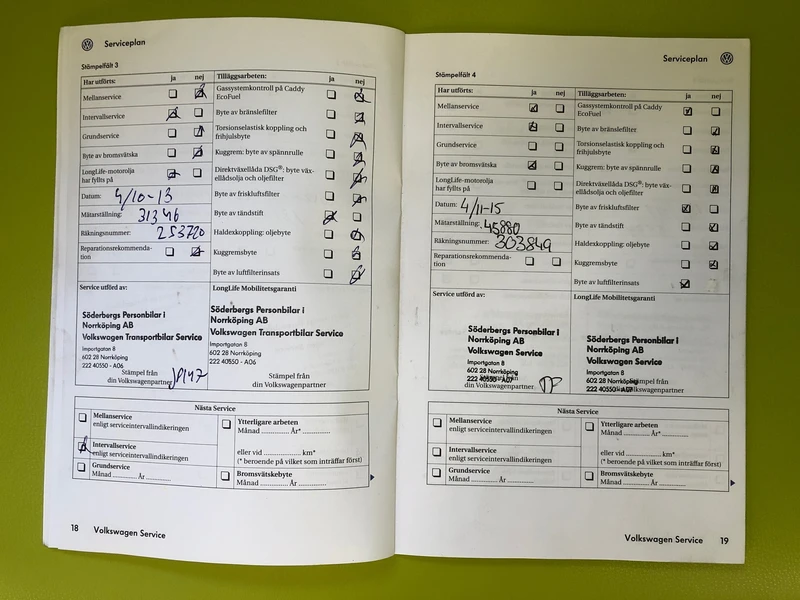 Serviceplan
Stämpelfält 3
Har utförts: ja nej
Mellanservice
Intervallservice
Grundservice
Byte av bromsvätska
LongLife-motorolja
har fyllts på
Datum: 4/10-13
Mätarställning: 31346
Räkningsnummer: 253720
Reparationsrekommenda-
tion
Tilläggsarbeten: ja nej
Gassystemkontroll på Caddy
EcoFuel
Byte av bränslefilter
Torsionselastisk koppling och
frihjulsbyte
Kuggrem: byte av spännrulle
Direktväxellåda DSG®: byte väx-
ellådsolja och oljefilter
Byte av friskluftsfilter
Byte av tändstift
Haldexkoppling: oljebyte
Kuggremsbyte
Byte av luftfilterinsats
Service utförd av:
Söderbergs Personbilar i
Norrköping AB
Volkswagen Transportbilar Service
Importgatan 8
602 28 Norrköping
222 40550 - A06
Stämpel från
din Volkswagenpartner
LongLife Mobilitetsgaranti
Söderbergs Personbilar i
Norrköping AB
Volkswagen Transportbilar Service
Importgatan 8
602 28 Norrköping
222 40550 - A06
Stämpel från
din Volkswagenpartner
Nästa Service
Mellanservice
enligt serviceintervallindikeringen
Intervallservice
enligt serviceintervallindikeringen
Grundservice
Månad ............ År ............
Ytterligare arbeten
Månad ............ År* ............
eller vid ............ km*
(* beroende på vilket som inträffar först)
Bromsvätskebyte
Månad ............ År ............
18 Volkswagen Service
Serviceplan
Stämpelfält 4
Har utförts: ja nej
Mellanservice
Intervallservice
Grundservice
Byte av bromsvätska
LongLife-motorolja
har fyllts på
Datum: 4/11-15
Mätarställning: 45880
Räkningsnummer: 303849
Reparationsrekommenda-
tion
Tilläggsarbeten: ja nej
Gassystemkontroll på Caddy
EcoFuel
Byte av bränslefilter
Torsionselastisk koppling och
frihjulsbyte
Kuggrem: byte av spännrulle
Direktväxellåda DSG®: byte väx-
ellådsolja och oljefilter
Byte av friskluftsfilter
Byte av tändstift
Haldexkoppling: oljebyte
Kuggremsbyte
Byte av luftfilterinsats
Service utförd av:
Söderbergs Personbilar i
Norrköping AB
Volkswagen Service
Importgatan 8
602 28 Norrköping
222 40550 - A07
Stämpel från
din Volkswagenpartner
LongLife Mobilitetsgaranti
Söderbergs Personbilar i
Norrköping AB
Volkswagen Service
Importgatan 8
602 28 Norrköping
222 40550 - A07
Stämpel från
din Volkswagenpartner
Nästa Service
Mellanservice
enligt serviceintervallindikeringen
Intervallservice
enligt serviceintervallindikeringen
Grundservice
Månad ............ År ............
Ytterligare arbeten
Månad ............ År* ............
eller vid ............ km*
(* beroende på vilket som inträffar först)
Bromsvätskebyte
Månad ............ År ............
Volkswagen Service 19